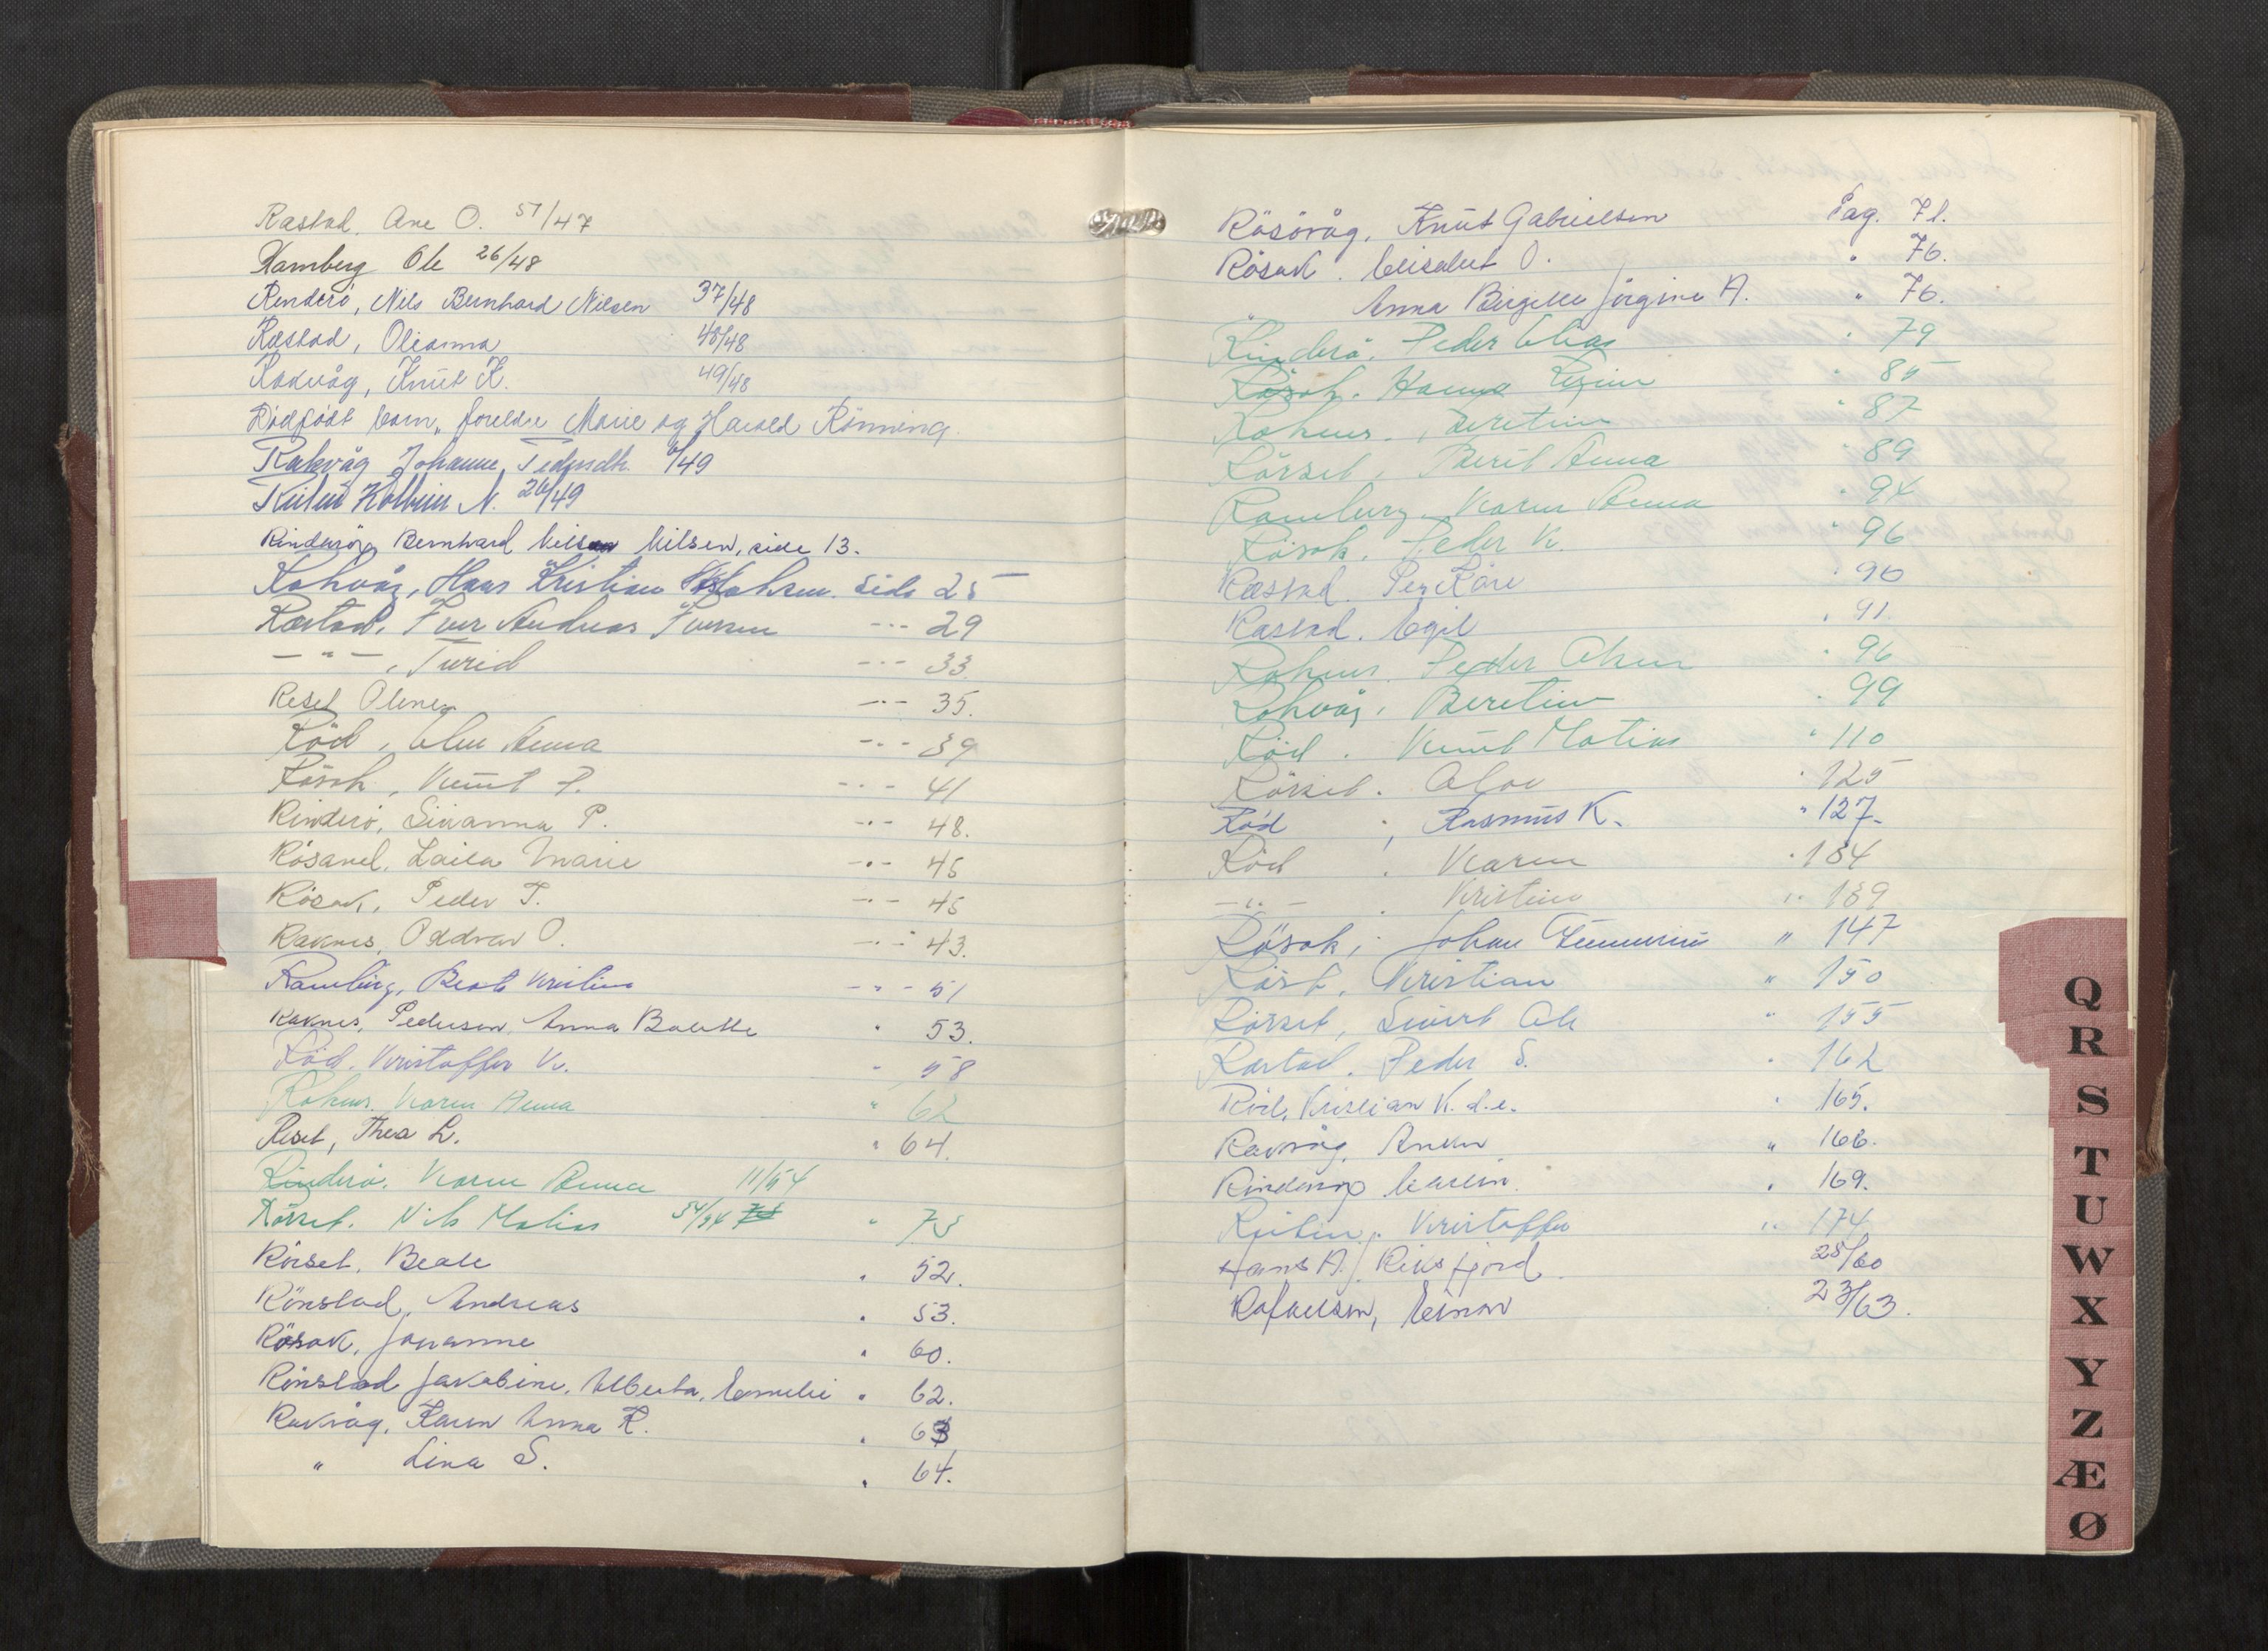 Rastad, Ane O. 51/47
Ramberg Ole 26/48
Rinderö, Nils Bernhard Nilsen 37/48
Rastad, Olianna 48/48
Rakvåg, Knut K. 49/48
Dödfödt barn, foreldre Marie og Harald Rönning.
Rakvåg Johanne /49
N. 26/49
Rinderöy Bernhard Nilsen, side 13.
Rakvåg, Hans Kristian side 25
Rastad, Iver Andreas Iversen --- 29
— " — , Turid --- 33.
Reset Oline --- 35.
Röd, Anna --- 39
Rösok, Knut P. --- 41
Rinderö, Sivanna P. --- 48.
Laila Marie --- 45
Rösok, Peder T. --- 45
Raknes, Oddvar O. --- 43.
Ramberg, Beate Kristine --- 51
Raknes, Pedersen, Anna Bolette " 53.
Röd, Kristoffer K. " 58
Raknes, Karen Anna " 62
Reset, Thea L. " 64.
Rinderö, Karen Anna 11/54
Rörset, Nils Matias 34/54 " 73
Rörset, Beate " 52.
Rönstad, Andreas " 53.
Rösok, Johanne " 60.
Rönstad Jakobine, Alberta, Emelie " 62.
Rakvåg, Karen Anna K. " 63
" Lina S. " 64.
Rösövåg, Knut Gabrielsen Pag. 71.
Rösok. Elisabet O. " 76.
" Anna Birgitte Jörgine A. " 76.
Rinderö. Peder Elias " 79
Rösok. Hanna " 85
Raknes. Beretine " 87
Rörset, Berit Anna " 89
Ramberg, Karen Anna " 94
Rösok. Peder K. " 96
Rastad. Per Kåre " 90
Rastad. Egil " 91.
Raknes. Peder " 96
Rakvåg, Beretine " 99
Röd. Knut Matias " 110
Rörset. Olav " 125
Röd , Rasmus K. " 127.
Röd . Karen " 134
— " — . Kristine " 139
Rösok, Johan " 147
Kristian " 150
Rörset, Sivert Ole " 155
Rastad. Peder S. " 162
Röd, Kristian K. d.e. " 165.
Rakvåg, " 166.
Rinderöy " 169.
Kristoffer " 174
Hans A. Reksfjord 25/60
Rafaelsen, Einar 23/63.
Q
R
S
T
U
W
X
Y
Z
Æ
Ø